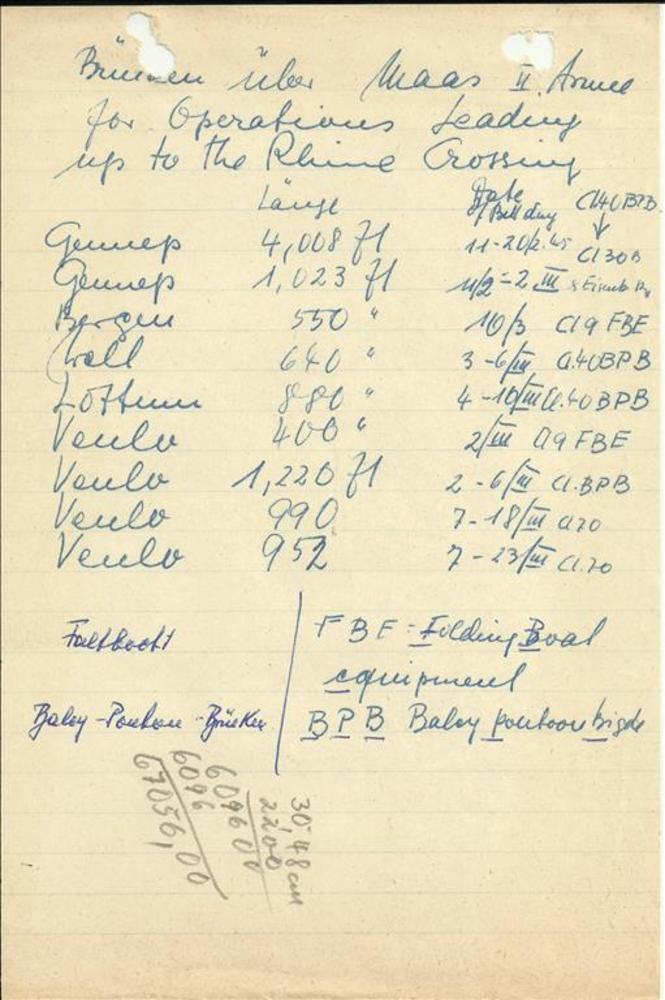 Brücken über Maas II. Armee
for Operations Leading
up to the Rhine Crossing
Länge Date of Building Cl40BPB.
Gennep 4,008 ft 11-20/2.45 Cl30B
Gennep 1,023 ft 11/2-2.III
Bergen 550 " 10/3 Cl9 FBE
Well 640 " 3-6/III Cl.40BPB
Lottum 880 " 4-10/III Cl.40BPB
Venlo 400 " 2/III Cl9 FBE
Venlo 1,220 ft 2-6/III Cl.BPB
Venlo 990 7-18/III Cl70
Venlo 952 7-23/III Cl.70
Faltboot FBE = Folding Boat
equipment
Baley-Ponton-Brücken BPB Baley pontoon bigde
30,48 cm
2200
609600
6096
67056,00